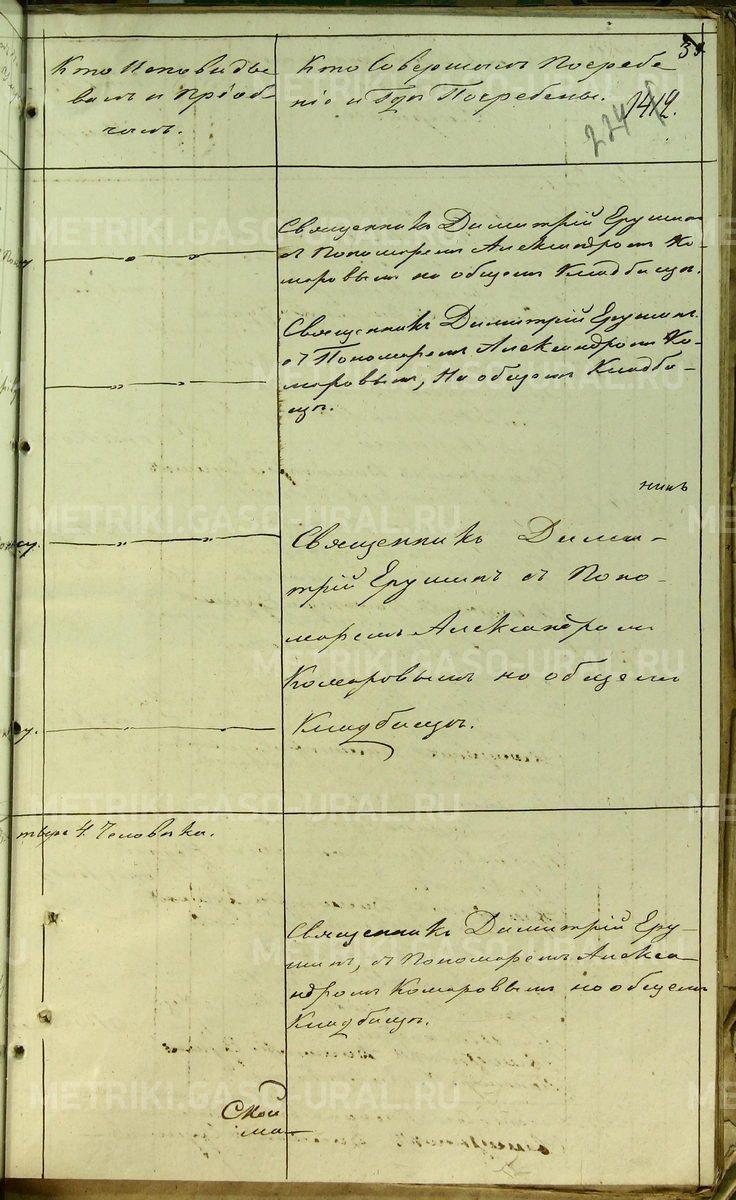 Кто Исповидывалъ и Пріобщалъ.
Кто Совершалъ Погребеніе и Гдѣ Погребены.
224
Священникъ Димитрій Ерушинъ
съ Пономаремъ Александромъ Ко-
маровымъ на общемъ Кладбищѣ.
Священникъ Димитрій Ерушинъ
съ Пономаремъ Александромъ Ко-
маровымъ, На общемъ Кладби-
щѣ.
никъ
Священникъ Дими-
трій Ерушинъ съ Поно-
маремъ Александромъ
Комаровымъ на общемъ
Кладбищѣ.
4 Человѣка.
Священникъ Димитрій Еру-
шинъ, съ Пономаремъ Алекса-
ндромъ Комаровымъ на общемъ
Кладбищѣ.
METRIKI.GASO-URAL.RU